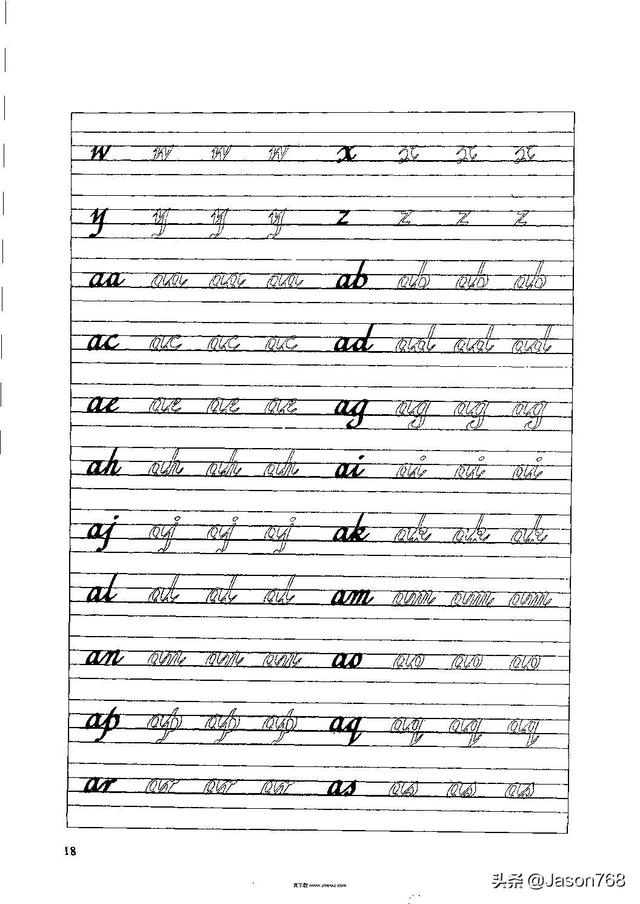 w w w w x x x x
y y y y z z z z
aa aa aa aa ab ab ab ab
ac ac ac ac ad ad ad ad
ae ae ae ae ag ag ag ag
ah ah ah ah ai ai ai ai
aj aj aj aj ak ak ak ak
al al al al am am am am
an an an an ao ao ao ao
ap ap ap ap aq aq aq aq
ar ar ar ar as as as as
18
头条 @Jason768